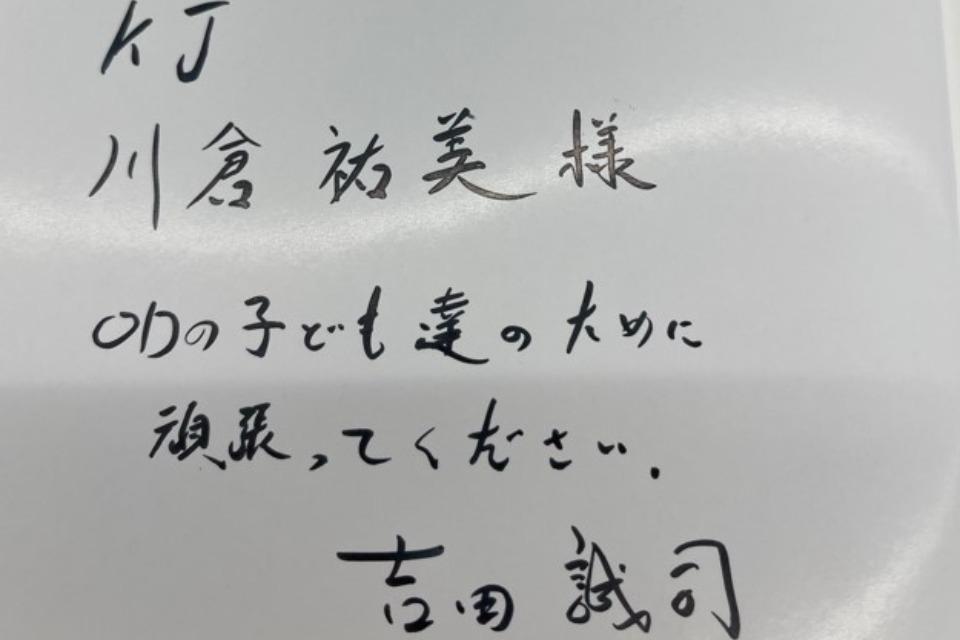 KJ
川倉 祐美 様
ODの子ども達のために
頑張ってください.
吉田 誠司